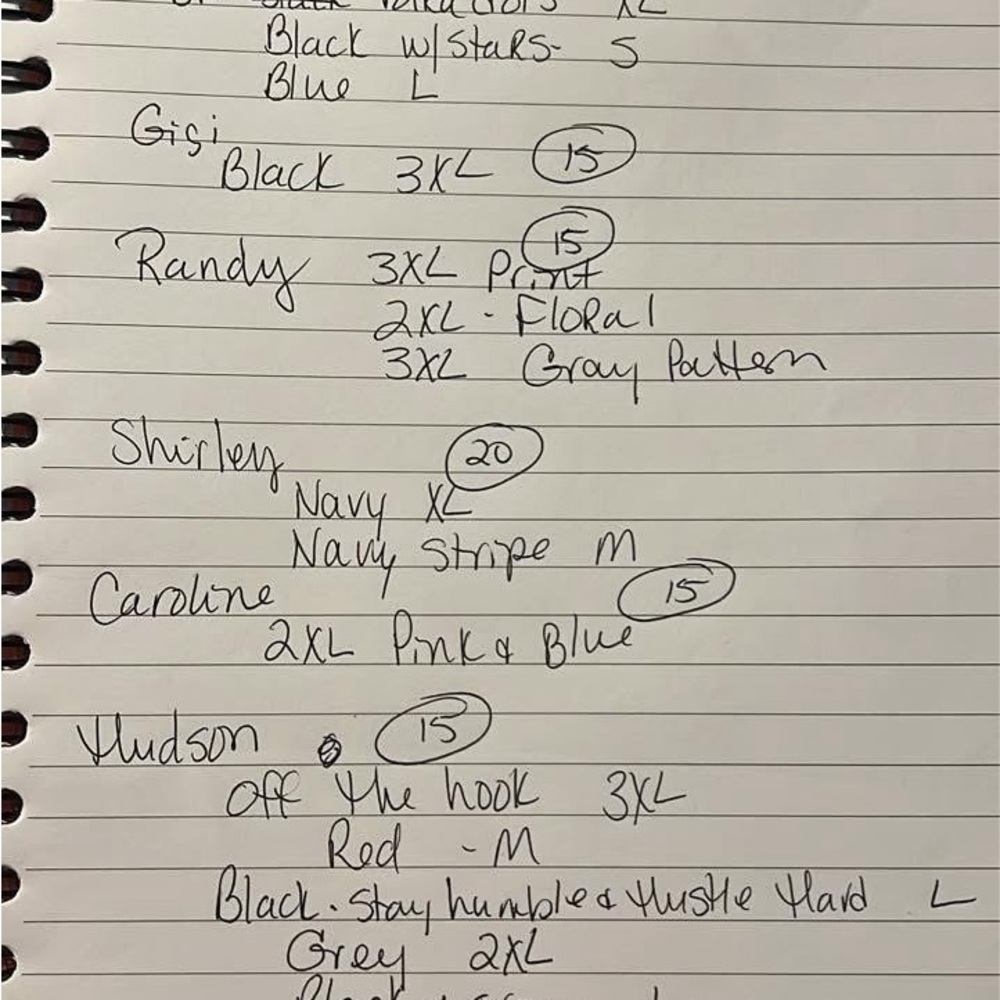 Polkadots XL
Black w/stars- S
Blue L
Gigi
Black 3XL 15
15
Randy 3XL Print
2XL - Floral
3XL Gray Pattern
Shirley 20
Navy XL
Navy Stripe M
Caroline 15
2XL Pink & Blue
Hudson 15
Off the hook 3XL
Red - M
Black. Stay humble & Hustle Hard L
Grey 2XL
Black